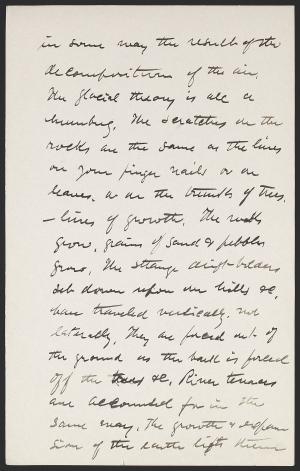 in some way the result of the
decomposition of the air.
The glacial theory is all a
humbug. The scratches on the
rocks are the same as the lines
on your finger nails or on
leaves, or on the trunks of trees.
– lines of growth. The rocks
grow, grains of sand & pebbles
grow. The strange drift-bolders
set down upon our hills &c,
have traveled vertically, not
laterally. They are forced out of
the ground as the bark is forced
off the trees &c. River terraces
are accounted for in the
same way. The growth & expan
sion of the earth lifts them